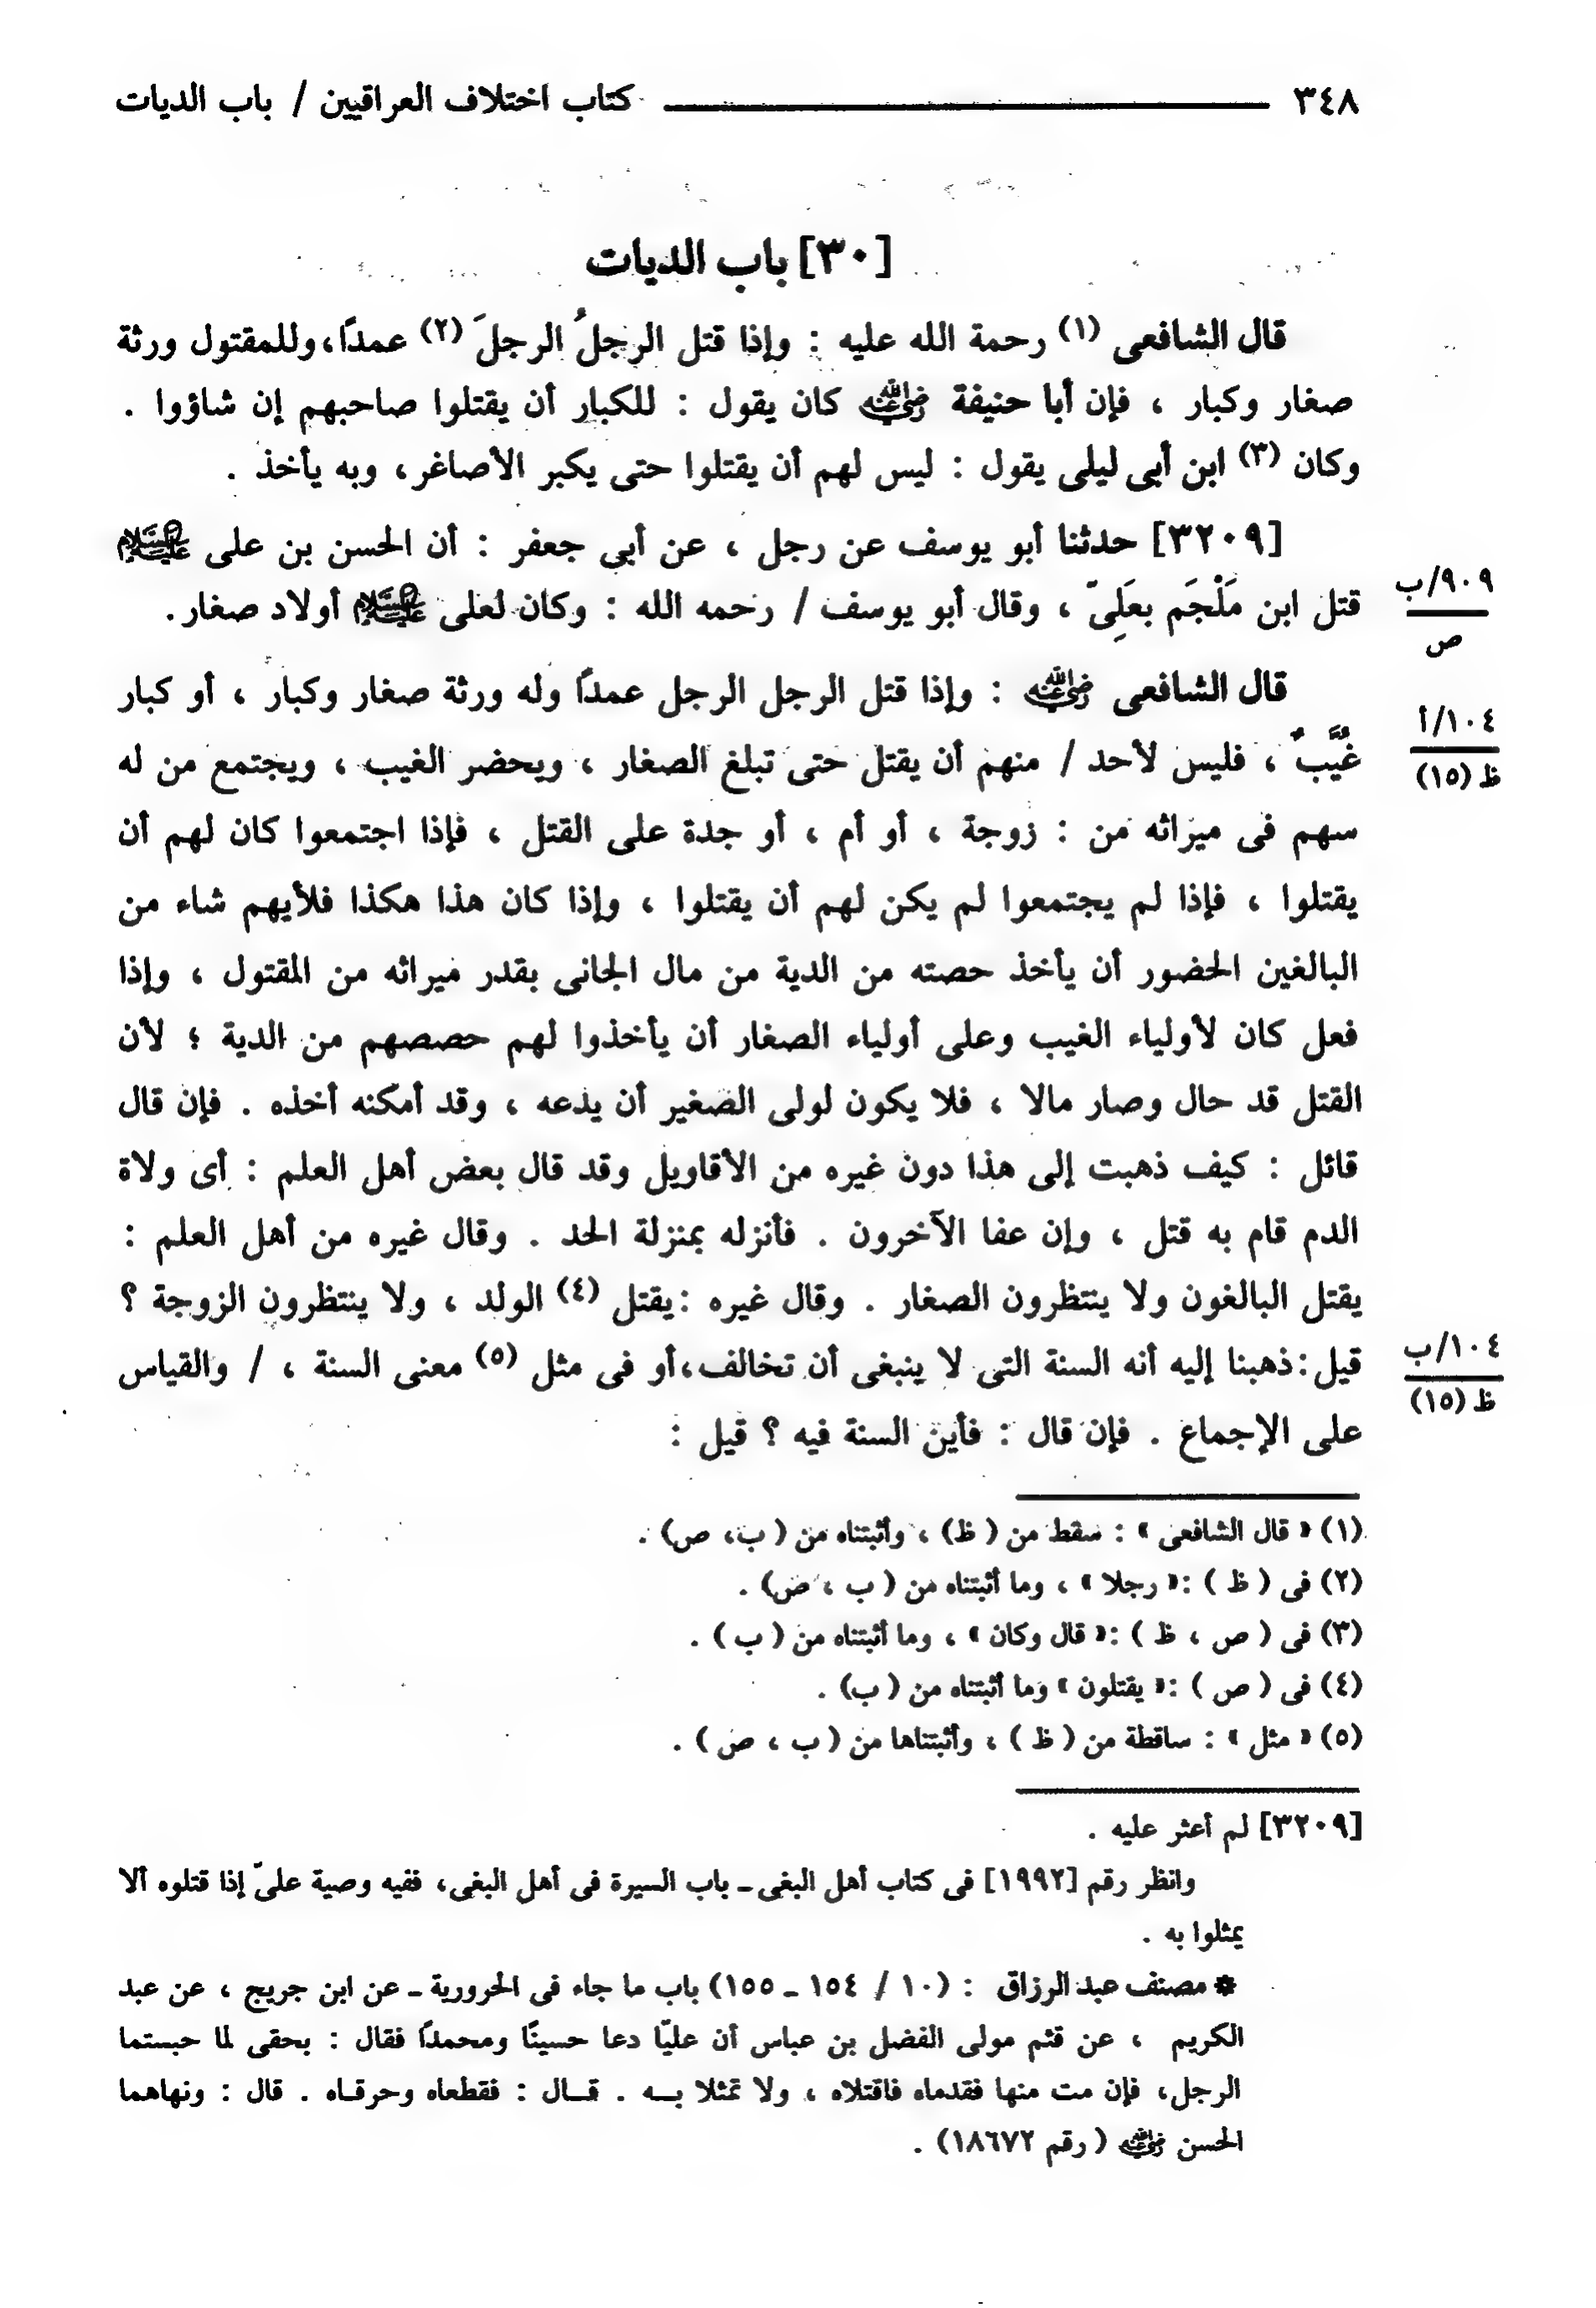 ٣٤٨ كتاب اختلاف العراقيين / باب الديات
[٣٠] باب الديات
قال الشافعى (١) رحمة الله عليه : وإذا قتل الرجلُ الرجلَ (٢) عمدًا، وللمقتول ورثة
صغار وكبار ، فإن أبا حنيفة رضي الله عنه كان يقول : للكبار أن يقتلوا صاحبهم إن شاؤوا .
وكان (٣) ابن أبى ليلى يقول : ليس لهم أن يقتلوا حتى يكبر الأصاغر، وبه يأخذ .
[٣٢٠٩] حدثنا أبو يوسف عن رجل ، عن أبى جعفر : أن الحسن بن على عليه السلام
قتل ابن مَلْجَم بعَلِىّ ، وقال أبو يوسف / رحمه الله : وكان لعلى عليه السلام أولاد صغار.
٩٠٩/ب
ص
قال الشافعى رضي الله عنه : وإذا قتل الرجل الرجل عمدًا وله ورثة صغار وكبار ، أو كبار
١٠٤/أ
غُيَّبٌ ، فليس لأحد / منهم أن يقتل حتى تبلغ الصغار ، ويحضر الغيب ، ويجتمع من له
ظ (١٥)
سهم فى ميراثه من : زوجة ، أو أم ، أو جدة على القتل ، فإذا اجتمعوا كان لهم أن
يقتلوا ، فإذا لم يجتمعوا لم يكن لهم أن يقتلوا ، وإذا كان هذا هكذا فلأيهم شاء من
البالغين الحضور أن يأخذ حصته من الدية من مال الجانى بقدر ميراثه من المقتول ، وإذا
فعل كان لأولياء الغيب وعلى أولياء الصغار أن يأخذوا لهم حصصهم من الدية ؛ لأن
القتل قد حال وصار مالا ، فلا يكون لولى الصغير أن يدعه ، وقد أمكنه أخذه . فإن قال
قائل : كيف ذهبت إلى هذا دون غيره من الأقاويل وقد قال بعض أهل العلم : أى ولاة
الدم قام به قتل ، وإن عفا الآخرون . فأنزله بمنزلة الحد . وقال غيره من أهل العلم :
يقتل البالغون ولا ينتظرون الصغار . وقال غيره :يقتل (٤) الولد ، ولا ينتظرون الزوجة ؟
قيل :ذهبنا إليه أنه السنة التى لا ينبغى أن تخالف،أو فى مثل (٥) معنى السنة ، / والقياس
١٠٤/ب
ظ (١٥)
على الإجماع . فإن قال : فأين السنة فيه ؟ قيل :
(١) « قال الشافعى » : سقط من ( ظ) ، وأثبتناه من ( ب، ص) .
(٢) فى ( ظ ) :« رجلا » ، وما أثبتناه من ( ب ، ص) .
(٣) فى ( ص ، ظ ) :« قال وكان » ، وما أثبتناه من ( ب ) .
(٤) فى ( ص ) :« يقتلون » وما أثبتناه من ( ب) .
(٥) « مثل » : ساقطة من ( ظ ) ، وأثبتناها من ( ب ، ص ) .
[٣٢٠٩] لم أعثر عليه .
وانظر رقم [١٩٩٢] فى كتاب أهل البغى ـ باب السيرة فى أهل البغى، ففيه وصية علىّ إذا قتلوه ألا
يمثلوا به .
* مصنف عبد الرزاق : (١٠ / ١٥٤ ـ ١٥٥) باب ما جاء فى الحرورية ـ عن ابن جريج ، عن عبد
الكريم ، عن قثم مولى الفضل بن عباس أن عليّا دعا حسينًا ومحمدًا فقال : بحقى لما حبستما
الرجل، فإن مت منها فقدماه فاقتلاه ، ولا تمثلا بـــه . قـــال : فقطعاه وحرقـاه . قال : ونهاهما
الحسن رضي الله عنه ( رقم ١٨٦٧٢) .